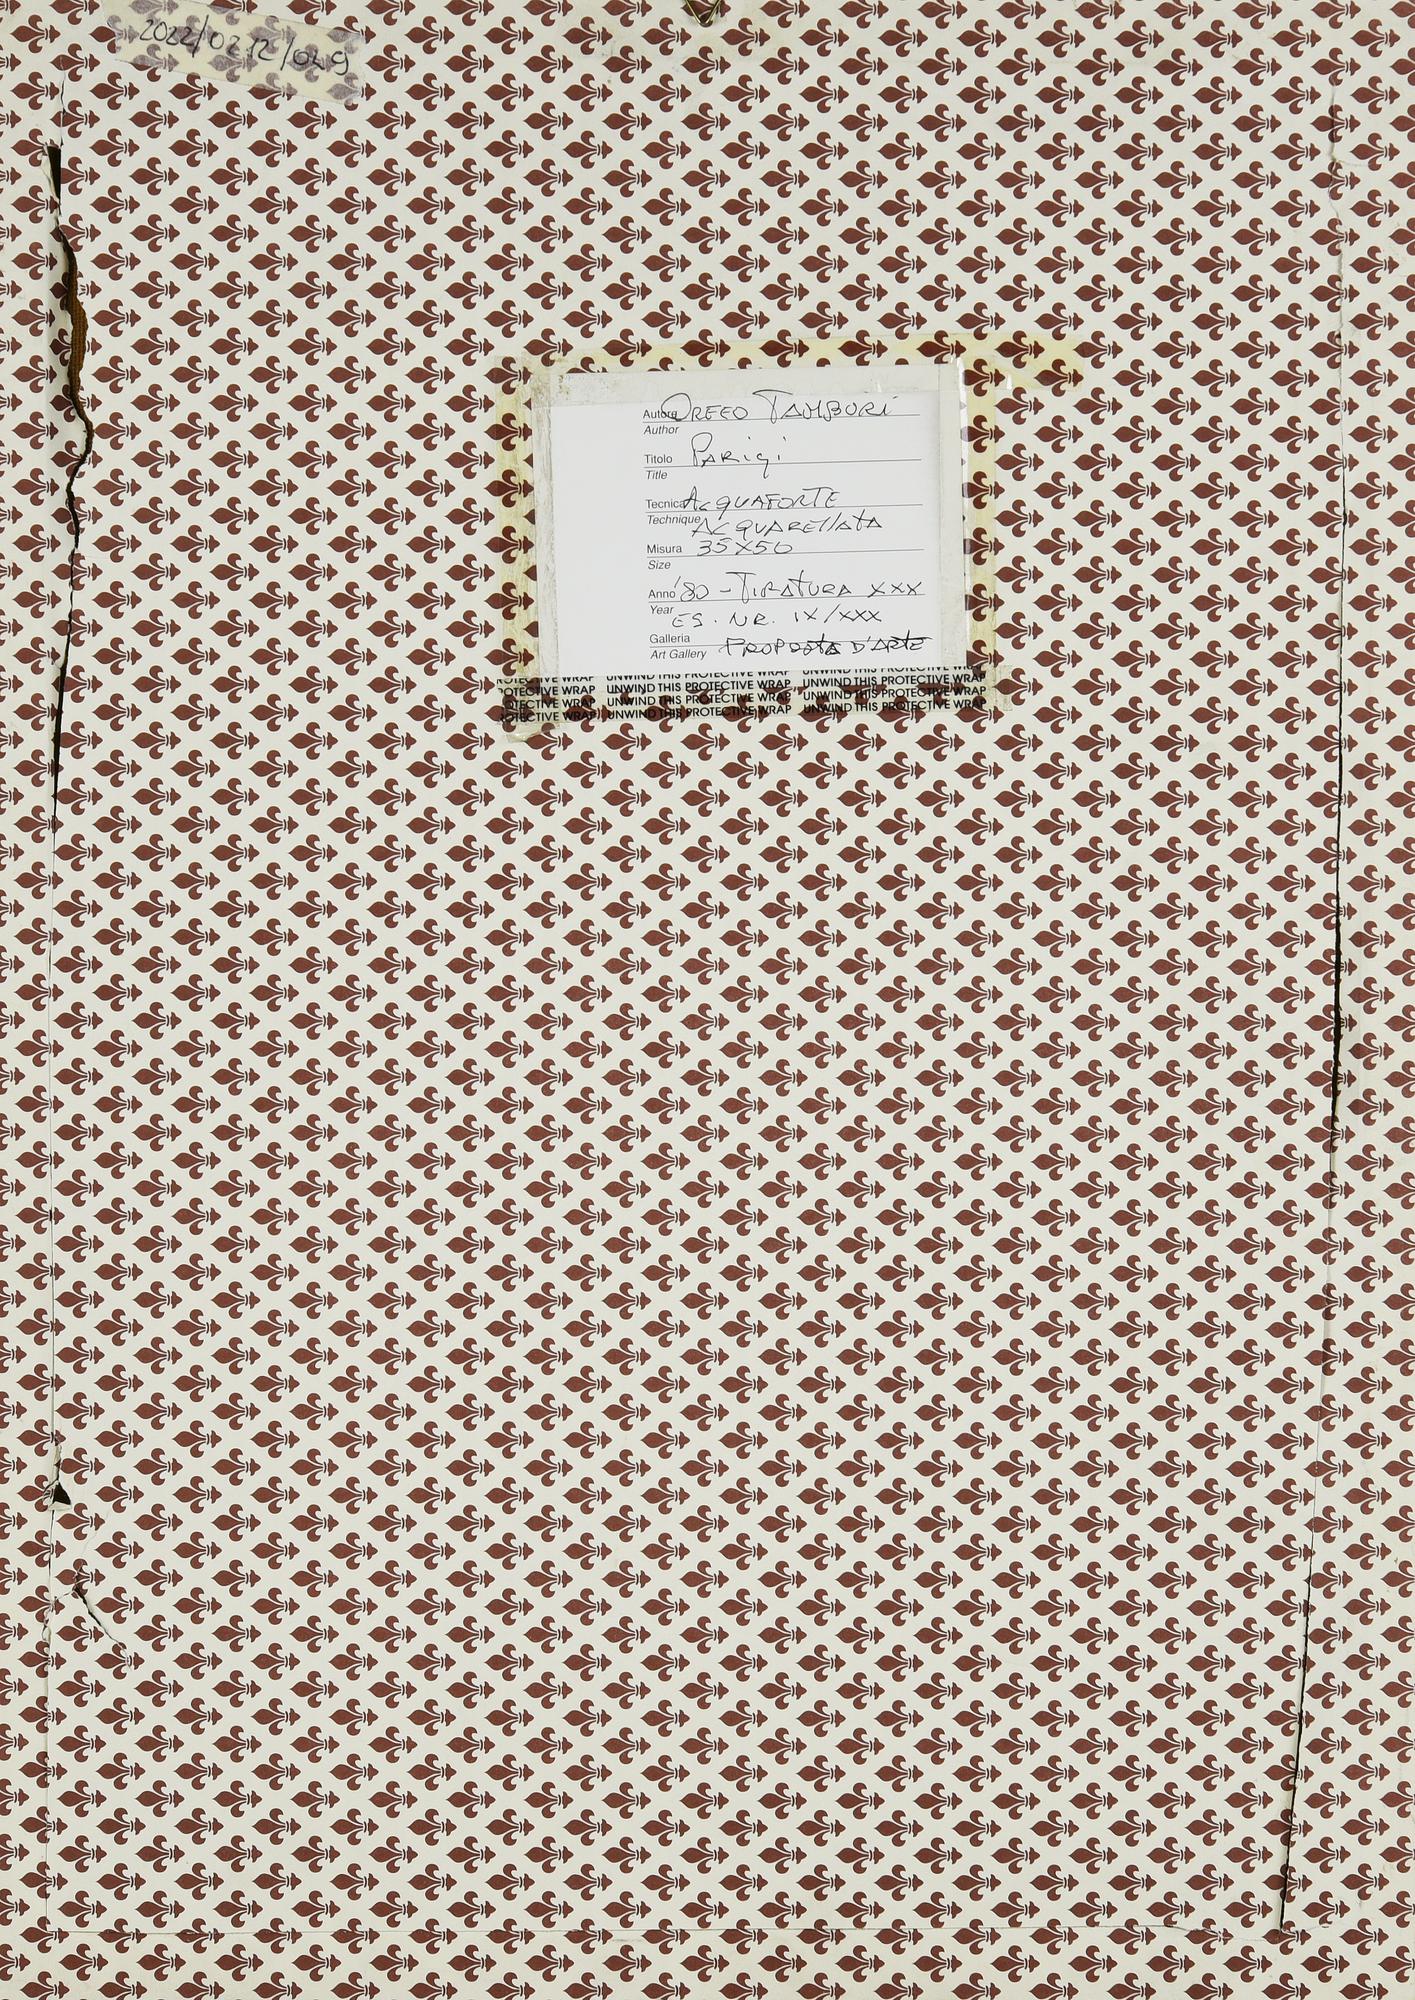 2022/0212/029
Autore ORFEO TAMBURI
Author
Titolo PARIGI
Title
Tecnica ACQUAFORTE
Technique ACQUARELLATA
Misura 35X50
Size
Anno '80 - TIRATURA XXX
Year ES. NR. IX/XXX
Galleria
Art Gallery PROPOSTA D'ARTE
PROTECTIVE WRAP UNWIND THIS PROTECTIVE WRAP UNWIND THIS PROTECTIVE WRAP
OTECTIVE WRAP UNWIND THIS PROTECTIVE WRAP UNWIND THIS PROTECTIVE WRAP
OTECTIVE WRAP UNWIND THIS PROTECTIVE WRAP UNWIND THIS PROTECTIVE WRAP
OTECTIVE WRAP UNWIND THIS PROTECTIVE WRAP UNWIND THIS PROTECTIVE WRAP